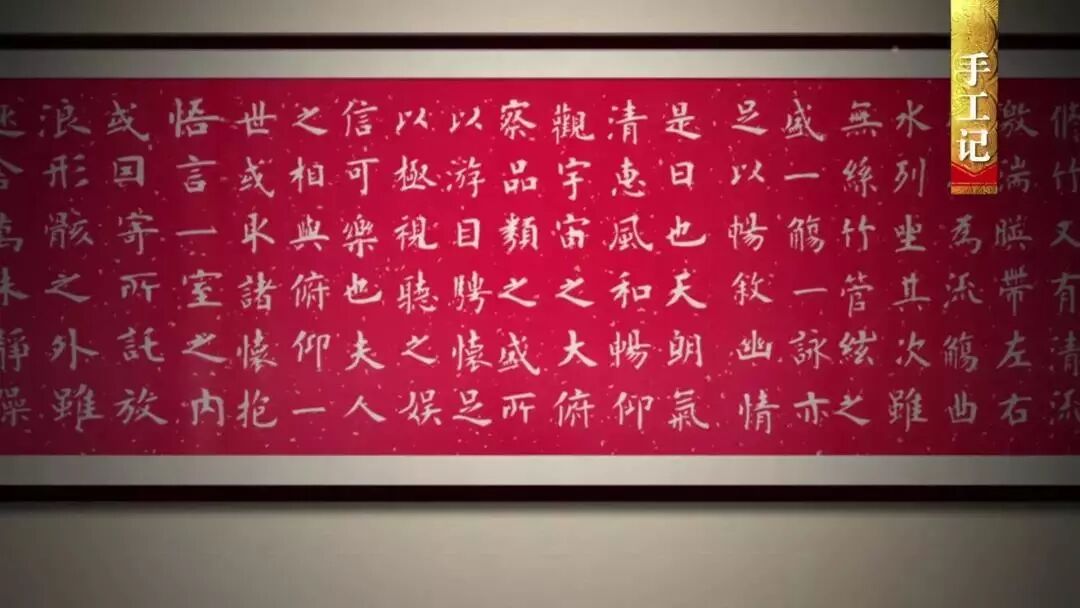 手工记
脩竹又有清流
激湍暎帶左右
為流觴曲
水列坐其次雖
無絲竹管絃之
盛一觴一詠亦
足以暢敘幽情
是日也天朗氣
清惠風和暢仰
觀宇宙之大俯
察品類之盛所
以游目騁懷足
以極視聽之娛
信可樂也夫人
之相與俯仰一
世或取諸懷抱
悟言一室之內
或因寄所託放
浪形骸之外雖
舍萬殊靜躁